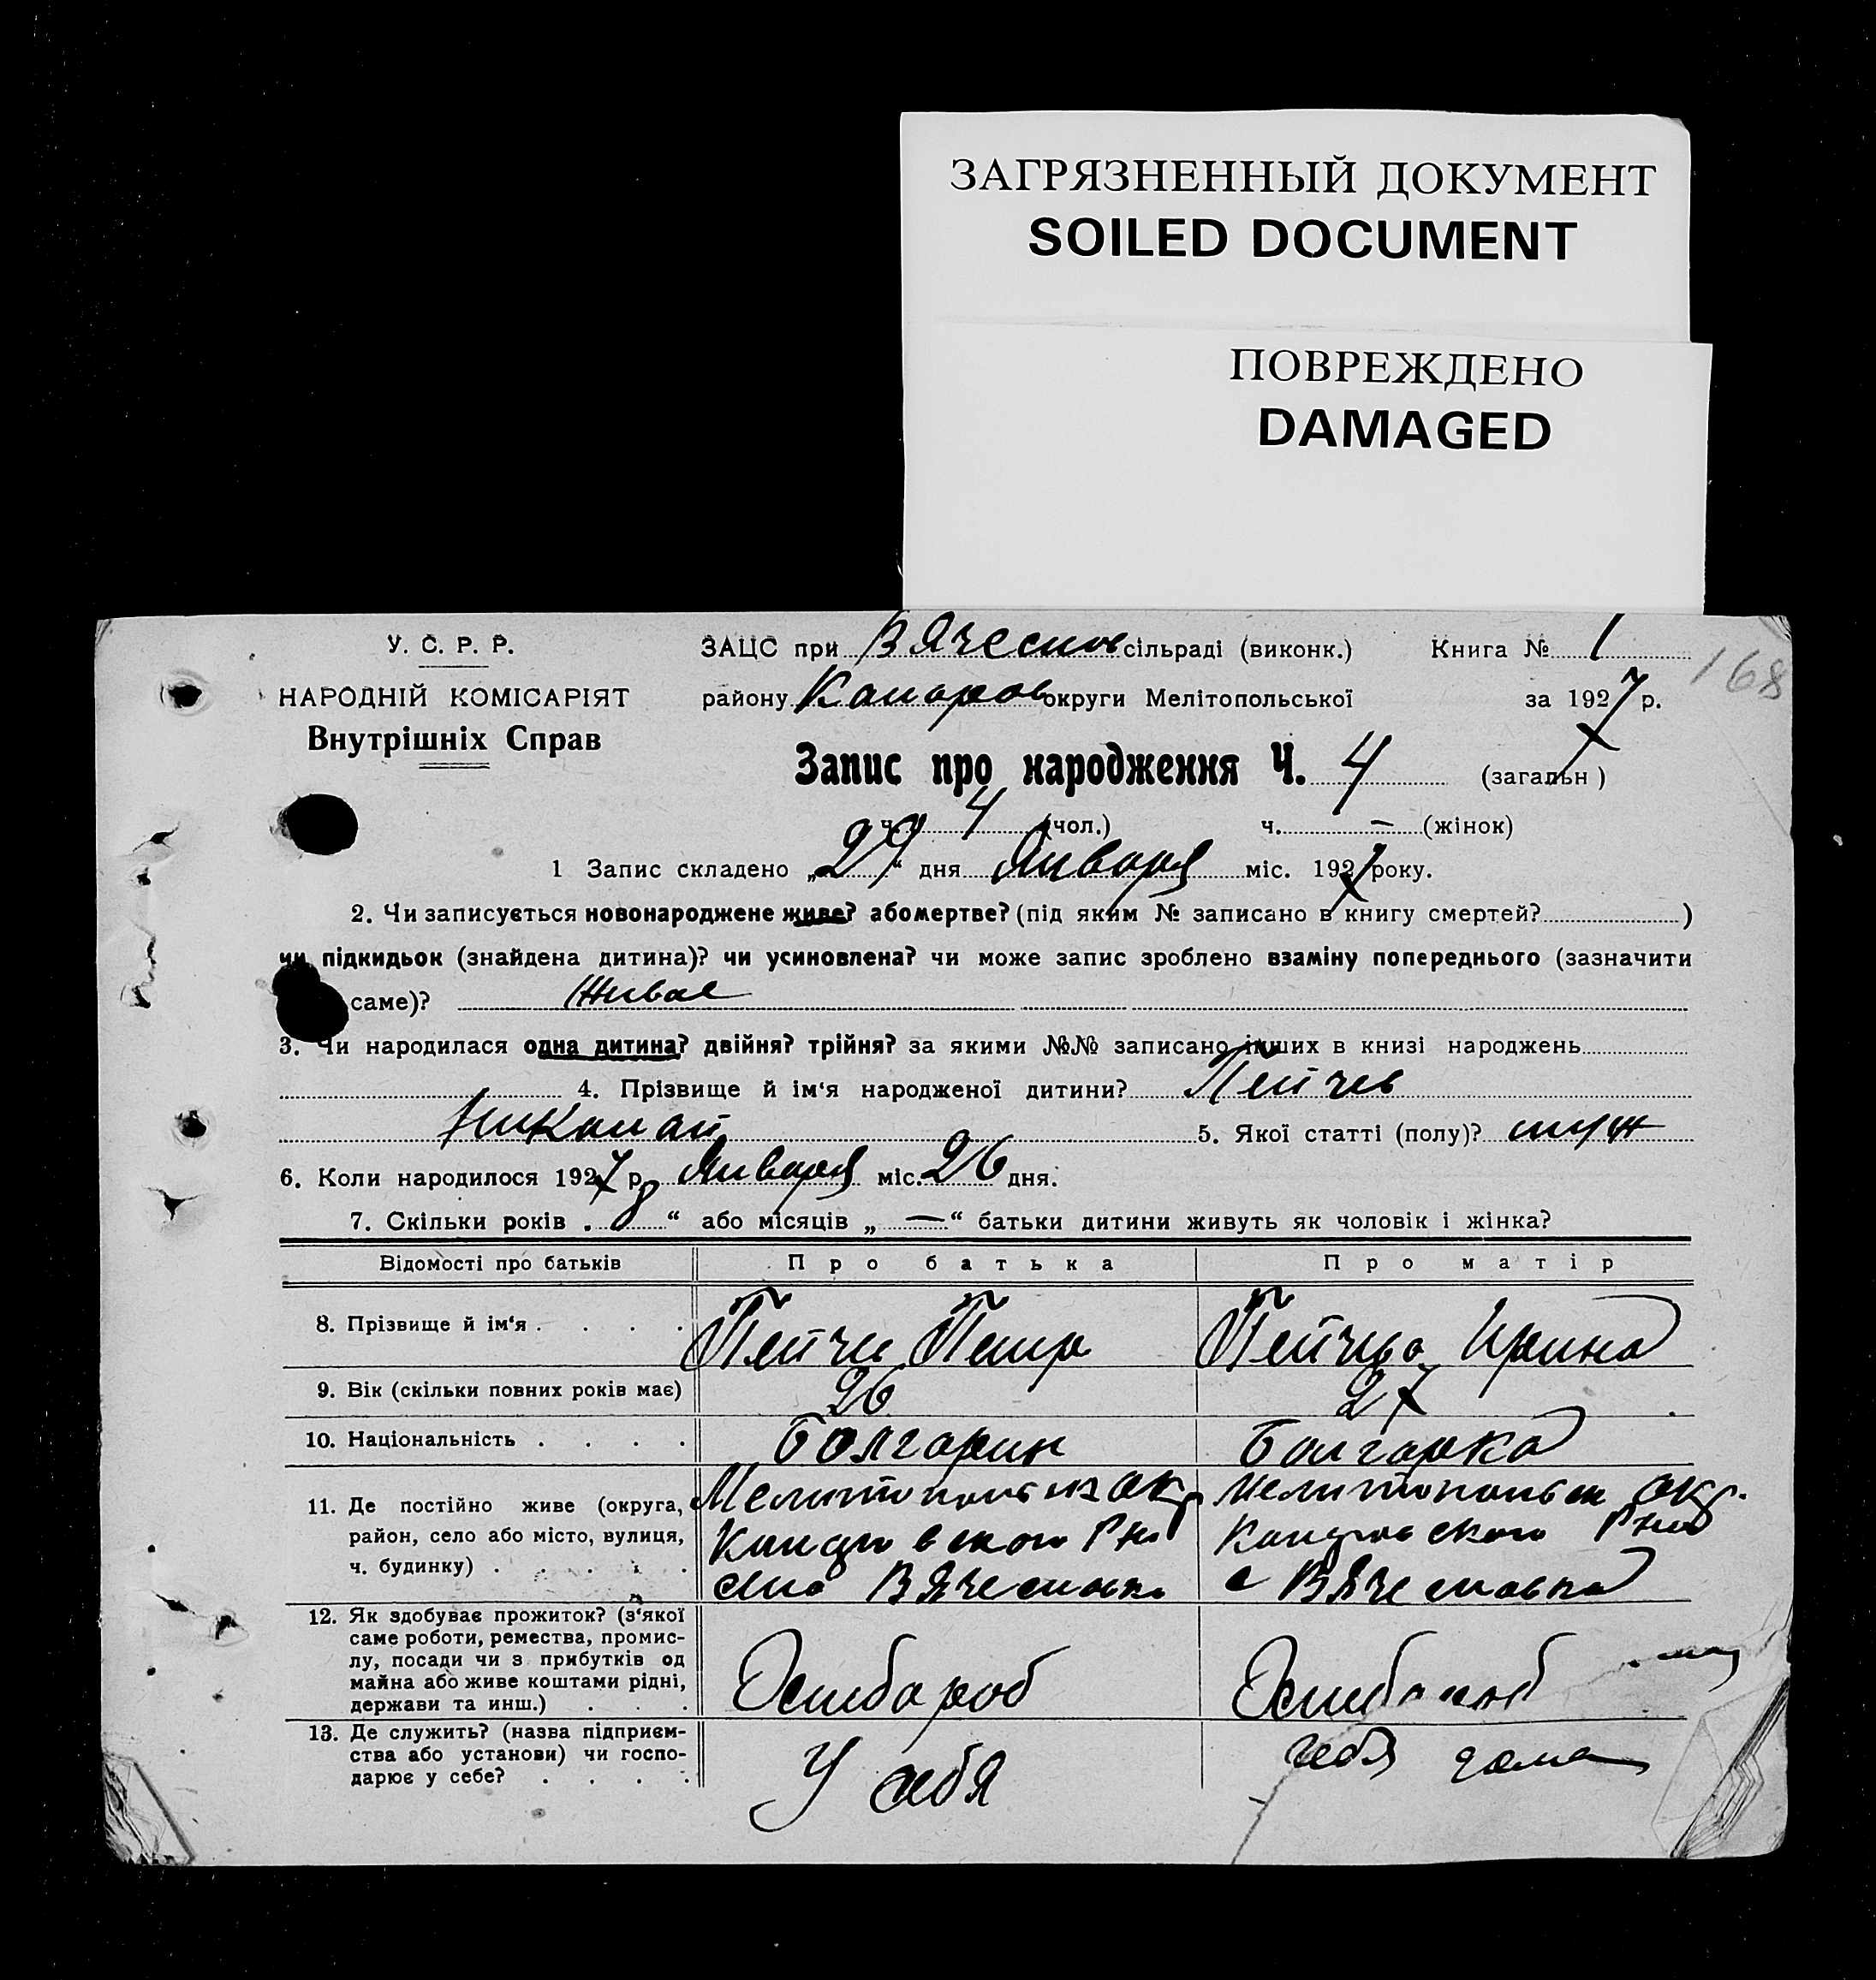 ЗАГРЯЗНЕННЫЙ ДОКУМЕНТ
SOILED DOCUMENT
ПОВРЕЖДЕНО
DAMAGED
У. С. Р. Р.
НАРОДНІЙ КОМІСАРІЯТ
Внутрішніх Справ
ЗАЦС при Вячеслов сільраді (виконк.) Книга № 1
168
району округи Мелітопольської за 1927 р.
Запис про народження Ч. 4 (загальн )
ч. 4 (чол.) ч. — (жінок)
1 Запис складено „29“ дня Января міс. 1927 року.
2. Чи записується новонароджене живе? або мертве? (під яким № записано в книгу смертей? )
чи підкидьок (знайдена дитина)? чи усиновлена? чи може запис зроблено взаміну попереднього (зазначити
саме)? Живое
3. Чи народилася одна дитина? двійня? трійня? за якими №№ записано інших в книзі народжень
4. Прізвище й ім‘я народженої дитини? Пейчев
Николай 5. Якої статті (полу)? муж
6. Коли народилося 1927 р. Января міс. 26 дня.
7. Скільки років „ 8 “ або місяців „ — “ батьки дитини живуть як чоловік і жінка?
Відомості про батьків Про батька Про матір
8. Прізвище й ім‘я . . . . Пейчев Петр Пейчева Ирина
9. Вік (скільки повних років має) 26 27
10. Національність . . . . Болгарин Болгарка
11. Де постійно живе (округа,
район, село або місто, вулиця,
ч. будинку) . . . . .
Мелитопольск окр
село Вячеславка
Мелитопольск окр.
с Вячеславка
12. Як здобуває прожиток? (з‘якої
саме роботи, ремества, промис-
лу, посади чи з прибутків од
майна або живе коштами рідні,
держави та инш.) . . .
13. Де служить? (назва підприєм-
ства або установи) чи госпо-
дарює у себе? . . . .
У себя
себя дома